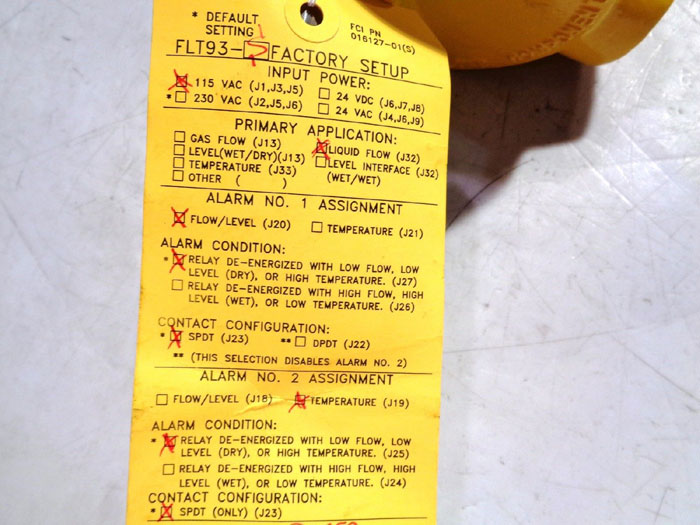 * DEFAULT SETTING
FCI PN
016127-01(S)
FLT93- FACTORY SETUP
INPUT POWER:
115 VAC (J1,J3,J5) 24 VDC (J6,J7,J8)
* 230 VAC (J2,J5,J6) 24 VAC (J4,J6,J9)
PRIMARY APPLICATION:
GAS FLOW (J13) LIQUID FLOW (J32)
LEVEL(WET/DRY)(J13) LEVEL INTERFACE (J32)
TEMPERATURE (J33) (WET/WET)
OTHER ( )
ALARM NO. 1 ASSIGNMENT
FLOW/LEVEL (J20) TEMPERATURE (J21)
ALARM CONDITION:
* RELAY DE-ENERGIZED WITH LOW FLOW, LOW
LEVEL (DRY), OR HIGH TEMPERATURE. (J27)
RELAY DE-ENERGIZED WITH HIGH FLOW, HIGH
LEVEL (WET), OR LOW TEMPERATURE. (J26)
CONTACT CONFIGURATION:
* SPDT (J23) ** DPDT (J22)
** (THIS SELECTION DISABLES ALARM NO. 2)
ALARM NO. 2 ASSIGNMENT
FLOW/LEVEL (J18) TEMPERATURE (J19)
ALARM CONDITION:
* RELAY DE-ENERGIZED WITH LOW FLOW, LOW
LEVEL (DRY), OR HIGH TEMPERATURE. (J25)
RELAY DE-ENERGIZED WITH HIGH FLOW, HIGH
LEVEL (WET), OR LOW TEMPERATURE. (J24)
CONTACT CONFIGURATION:
* SPDT (ONLY) (J23)